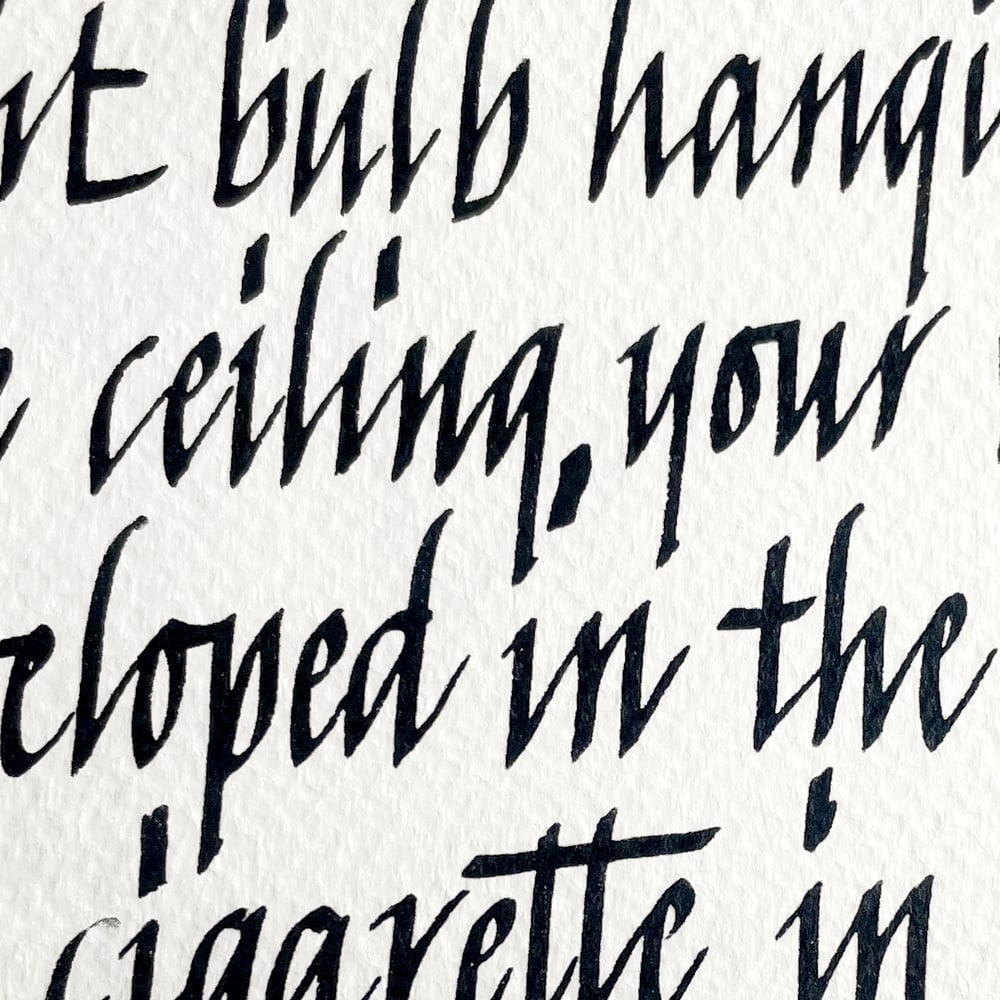 t bulb hangi
e ceiling, your
eloped in the
cigarette in